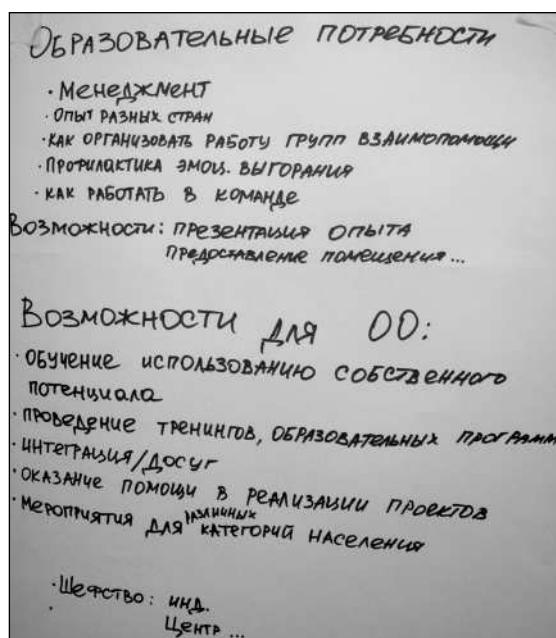 ОБРАЗОВАТЕЛЬНЫЕ ПОТРЕБНОСТИ
· МЕНЕДЖМЕНТ
· ОПЫТ РАЗНЫХ СТРАН
· КАК ОРГАНИЗОВАТЬ РАБОТУ ГРУПП ВЗАИМОПОМОЩИ
· ПРОФИЛАКТИКА ЭМОЦ. ВЫГОРАНИЯ
· КАК РАБОТАТЬ В КОМАНДЕ
ВОЗМОЖНОСТИ: ПРЕЗЕНТАЦИЯ ОПЫТА
ПРЕДОСТАВЛЕНИЕ ПОМЕЩЕНИЯ...
ВОЗМОЖНОСТИ ДЛЯ ОО:
· ОБУЧЕНИЕ ИСПОЛЬЗОВАНИЮ СОБСТВЕННОГО
ПОТЕНЦИАЛА
· ПРОВЕДЕНИЕ ТРЕНИНГОВ, ОБРАЗОВАТЕЛЬНЫХ ПРОГРАММ
· ИНТЕГРАЦИЯ/ДОСУГ
· ОКАЗАНИЕ ПОМОЩИ В РЕАЛИЗАЦИИ ПРОЕКТОВ
· МЕРОПРИЯТИЯ ДЛЯ РАЗЛИЧНЫХ КАТЕГОРИЙ НАСЕЛЕНИЯ
· ШЕФСТВО: ИНД.
· ЦЕНТР ...